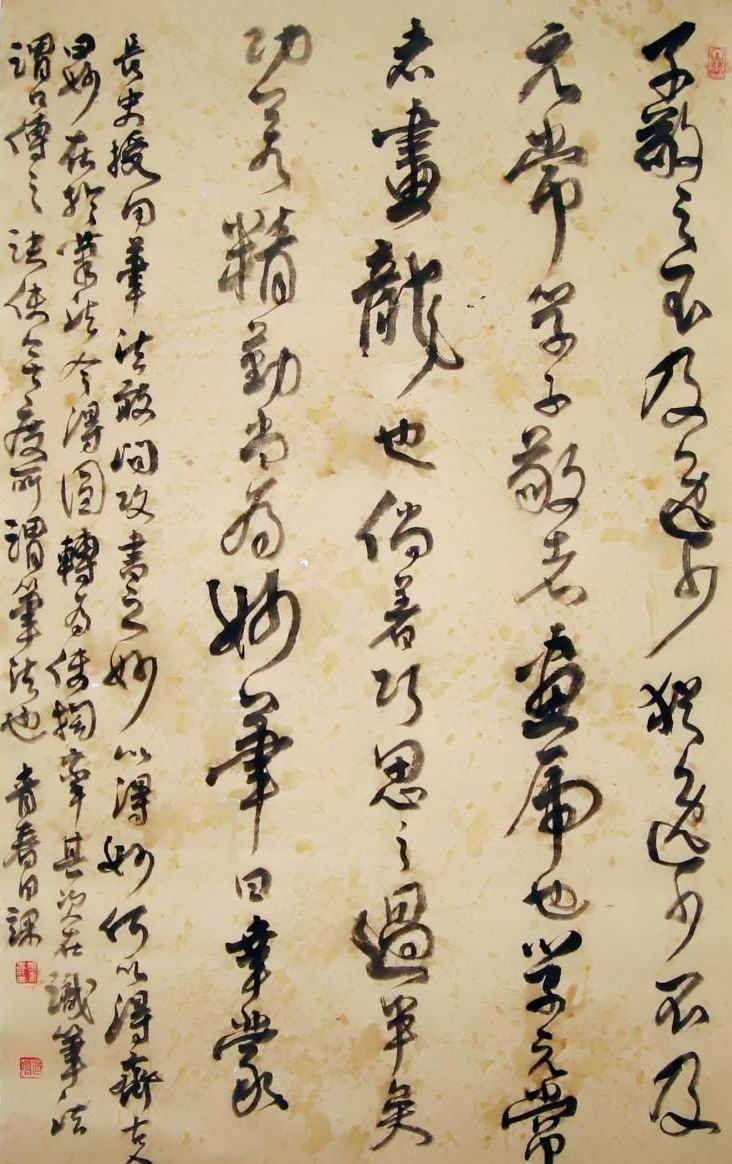 子敬之不及逸少猶逸少不及
元常學子敬者畫虎也學元常
者畫龍也倘著巧思之過半矣
功若精勤當為妙筆曰幸蒙
長史授用筆法敢問攻書之妙以得妙何以得齊古人
曰妙在於筆法令得圓轉勿使拘牽其次在識筆法
謂口傳之訣使無度所謂筆法也 春日課